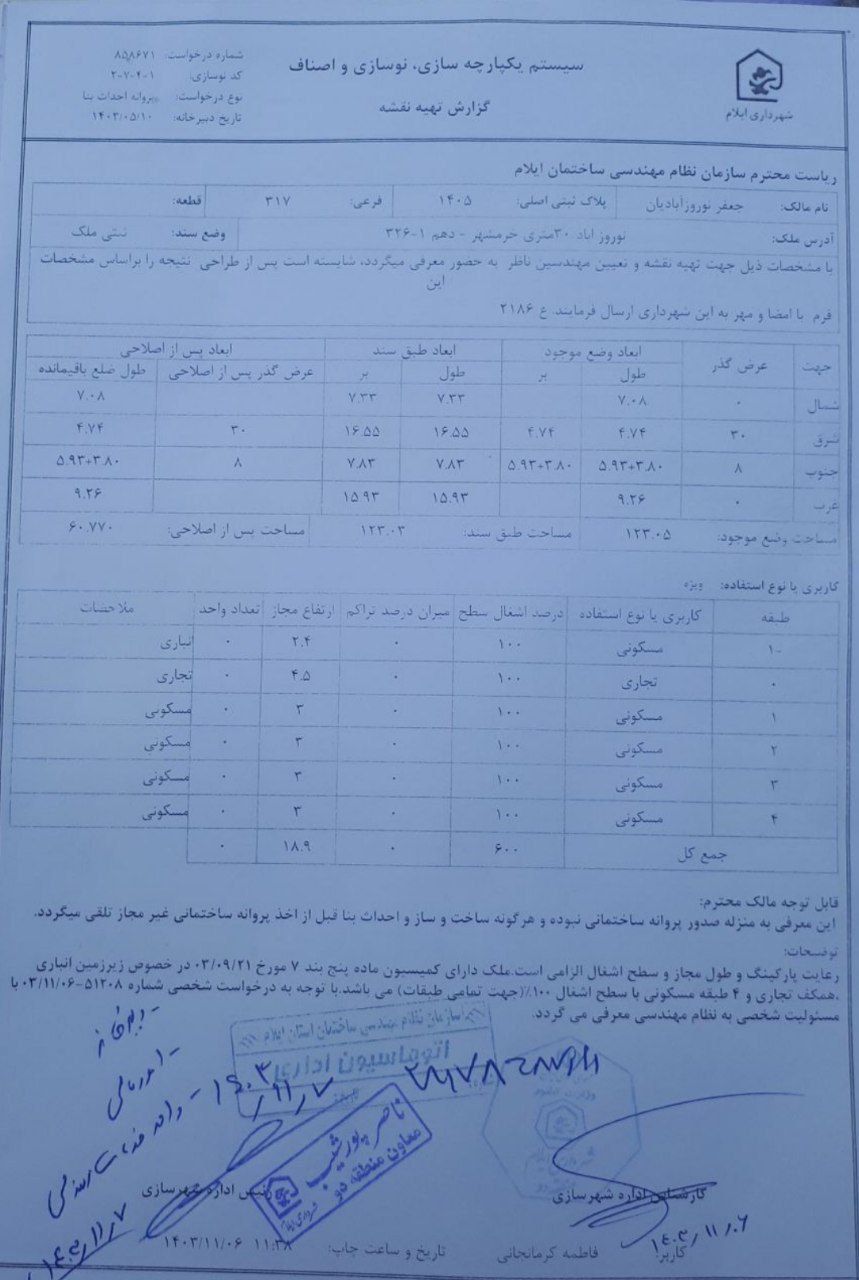 شهرداری ایلام
سیستم یکپارچه سازی، نوسازی و اصناف
گزارش تهیه نقشه
شماره درخواست: ۸۵۸۶۷۱
کد نوسازی: ۲-۷-۴-۱
نوع درخواست: پروانه احداث بنا
تاریخ دبیرخانه: ۱۴۰۳/۰۵/۱۰
ریاست محترم سازمان نظام مهندسی ساختمان ایلام
نام مالک: جعفر نوروزآبادیان پلاک ثبتی اصلی: ۱۴۰۵ فرعی: ۳۱۷ قطعه:
آدرس ملک: نوروز اباد ۳۰متری خرمشهر - دهم ۱-۳۲۶ وضع سند: ثبتی ملک
با مشخصات ذیل جهت تهیه نقشه و تعیین مهندسین ناظر به حضور معرفی میگردد، شایسته است پس از طراحی نتیجه را براساس مشخصات
این
فرم با امضا و مهر به این شهرداری ارسال فرمایند. ع ۲۱۸۶
جهت عرض گذر ابعاد وضع موجود ابعاد طبق سند ابعاد پس از اصلاحی
طول بر طول بر عرض گذر پس از اصلاحی طول ضلع باقیمانده
شمال ۰ ۷.۰۸ ۷.۳۳ ۷.۳۳ ۷.۰۸
شرق ۳۰ ۴.۷۴ ۴.۷۴ ۱۶.۵۵ ۱۶.۵۵ ۳۰ ۴.۷۴
جنوب ۸ ۵.۹۳+۳.۸۰ ۵.۹۳+۳.۸۰ ۷.۸۳ ۷.۸۳ ۸ ۵.۹۳+۳.۸۰
غرب ۰ ۹.۲۶ ۱۵.۹۳ ۱۵.۹۳ ۹.۲۶
مساحت وضع موجود: ۱۲۳.۰۵ مساحت طبق سند: ۱۲۳.۰۳ مساحت پس از اصلاحی: ۶۰.۷۷۰
کاربری یا نوع استفاده: ویژه
طبقه کاربری یا نوع استفاده درصد اشغال سطح میزان درصد تراکم ارتفاع مجاز تعداد واحد ملاحضات
-۱ مسکونی ۱۰۰ ۰ ۲.۴ ۰ انباری
۰ تجاری ۱۰۰ ۰ ۴.۵ ۰ تجاری
۱ مسکونی ۱۰۰ ۰ ۳ ۰ مسکونی
۲ مسکونی ۱۰۰ ۰ ۳ ۰ مسکونی
۳ مسکونی ۱۰۰ ۰ ۳ ۰ مسکونی
۴ مسکونی ۱۰۰ ۰ ۳ ۰ مسکونی
جمع کل ۶۰۰ ۰ ۱۸.۹ ۰
قابل توجه مالک محترم:
این معرفی به منزله صدور پروانه ساختمانی نبوده و هرگونه ساخت و ساز و احداث بنا قبل از اخذ پروانه ساختمانی غیر مجاز تلقی میگردد.
توضیحات:
رعایت پارکینگ و طول مجاز و سطح اشغال الزامی است.ملک دارای کمیسیون ماده پنج بند ۷ مورخ ۰۳/۰۹/۲۱ در خصوص زیرزمین انباری
.همکف تجاری و ۴ طبقه مسکونی با سطح اشغال ۱۰۰٪(جهت تمامی طبقات) می باشد.با توجه به درخواست شخصی شماره ۵۱۲۰۸-۰۳/۱۱/۰۶ با
مسئولیت شخصی به نظام مهندسی معرفی می گردد.
سازمان نظام مهندسی ساختمان استان ایلام
اتوماسیون اداری
۱۴۰۳/۱۱/۷
ناصر پورشیب
معاون منطقه دو
کارشناس اداره شهرسازی
رئیس اداره شهرسازی
۱۴۰۳/۱۱/۰۶
۱۴۰۳/۱۱/۷
کاربر: فاطمه کرمانجانی تاریخ و ساعت چاپ: ۱۱:۳۸ ۱۴۰۳/۱۱/۰۶